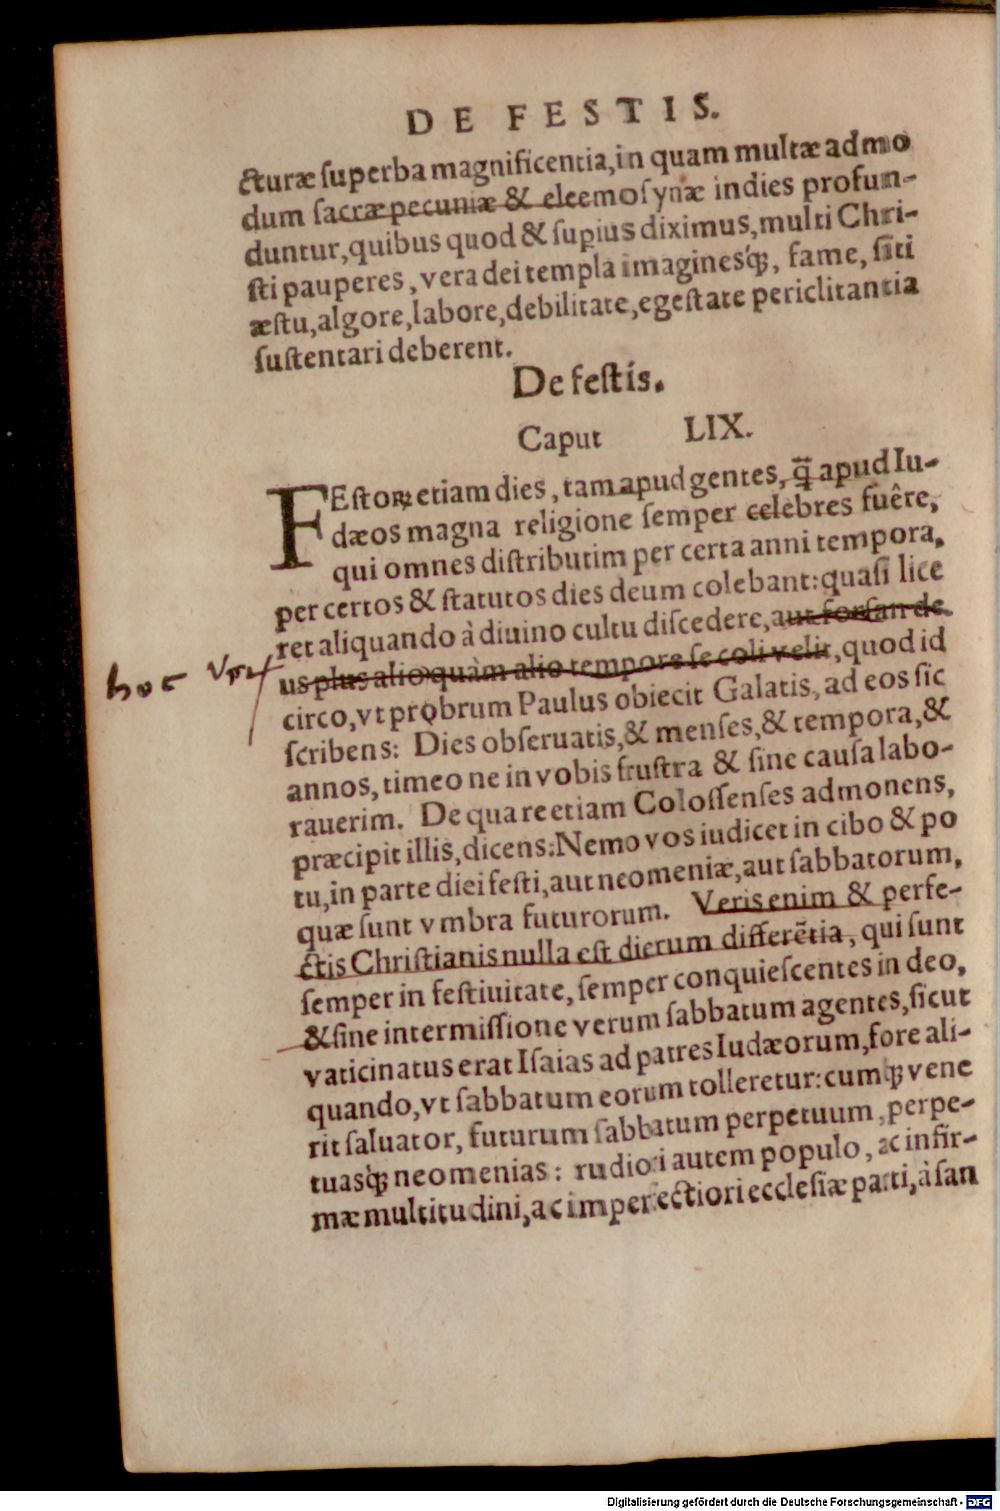 DE FESTIS.
cturæ ſuperba magnificentia, in quam multæ admo
dum ſacræ pecuniæ & eleemoſynæ indies profun-
duntur, quibus quod & ſupius diximus, multi Chri-
ſti pauperes, vera dei templa imaginesq́;, fame, ſiti
æſtu, algore, labore, debilitate, egeſtate periclitantia
ſuſtentari deberent.
De feſtis.
Caput LIX.
FEſtoꝝ etiam dies, tam apud gentes, q̃ apud Iu-
dæos magna religione ſemper celebres fuêre,
qui omnes diſtributim per certa anni tempora,
per certos & ſtatutos dies deum colebant: quaſi lice
ret aliquando à diuino cultu diſcedere, aut forſan de
us plus alio quàm alio tempore ſe coli velit, quod id
hoc
circo, vt probrum Paulus obiecit Galatis, ad eos ſic
ſcribens: Dies obſeruatis, & menſes, & tempora, &
annos, timeo ne in vobis fruſtra & ſine cauſa labo-
rauerim. De qua re etiam Coloſſenſes admonens,
præcipit illis, dicens: Nemo vos iudicet in cibo & po
tu, in parte diei feſti, aut neomeniæ, aut ſabbatorum,
quæ ſunt vmbra futurorum. Veris enim & perfe-
ctis Chriſtianis nulla eſt dierum differẽtia, qui ſunt
ſemper in feſtiuitate, ſemper conquieſcentes in deo,
& ſine intermiſſione verum ſabbatum agentes, ſicut
vaticinatus erat Iſaias ad patres Iudæorum, fore ali-
quando, vt ſabbatum eorum tolleretur: cumq́; vene
rit ſaluator, futurum ſabbatum perpetuum, perpe-
tuasq́; neomenias: rudiori autem populo, ac infir-
mæ multitudini, ac imperfectiori eccleſiæ parti, à ſan
Digitalisierung gefördert durch die Deutsche Forschungsgemeinschaft - DFG